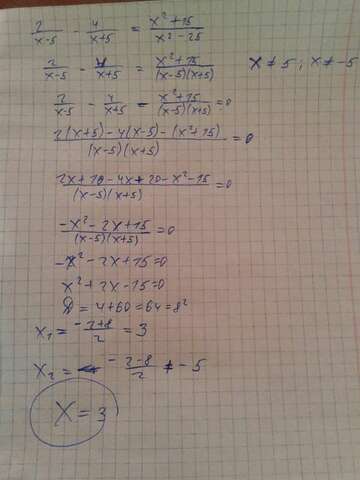 2/(x-5) - 4/(x+5) = (x²+15)/(x²-25)
2/(x-5) - 4/(x+5) = (x²+15)/((x-5)(x+5)) x≠5; x≠-5
2/(x-5) - 4/(x+5) - (x²+15)/((x-5)(x+5)) =0
(2(x+5)-4(x-5)-(x²+15))/((x-5)(x+5)) =0
(2x+10-4x+20-x²-15)/((x-5)(x+5)) =0
(-x²-2x+15)/((x-5)(x+5)) =0
-x²-2x+15=0
x²+2x-15=0
D=4+60=64=8²
x₁= (-2+8)/2 =3
x₂= (-2-8)/2 ≠-5
x=3